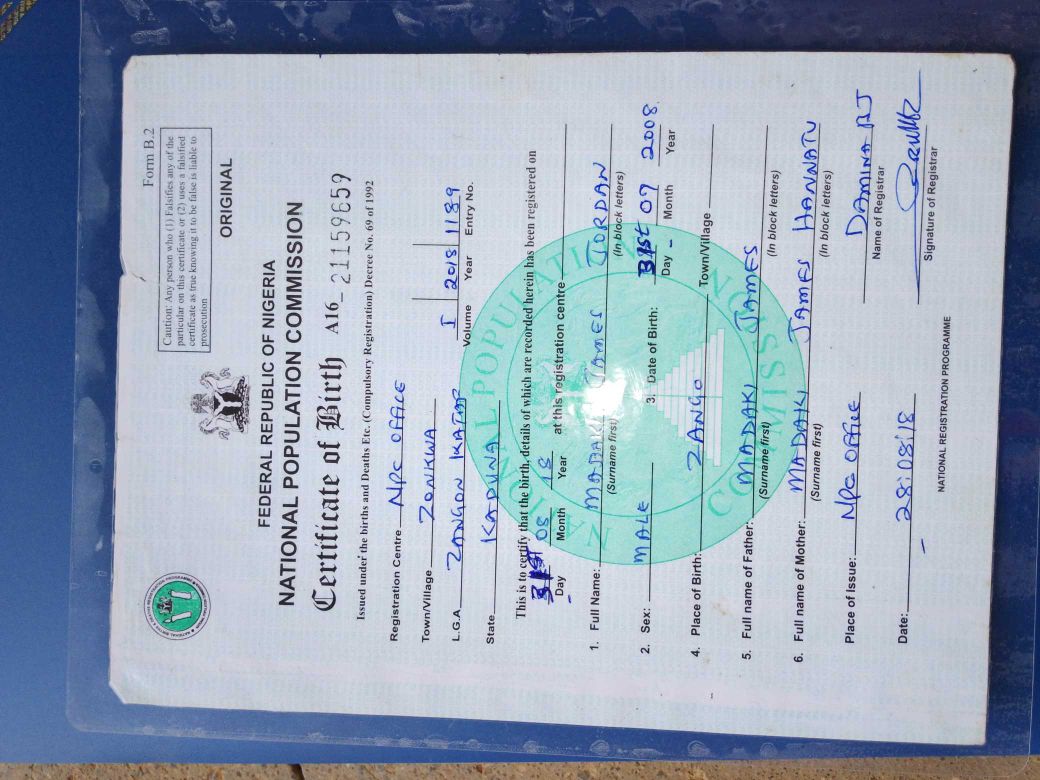 Form B.2
Caution: Any person who (1) Falsifies any of the
particular on this certificate or (2) uses a falsified
certificate as true knowing it to be false is liable to
prosecution
ORIGINAL
FEDERAL REPUBLIC OF NIGERIA
NATIONAL POPULATION COMMISSION
Certificate of Birth A16_ 21159659
Issued under the births and Deaths Etc. (Compulsory Registration) Decree No. 69 of 1992
Registration Centre NPC OFFICE
Town/Village ZONKWA
L.G.A ZANGON KATAF I 2018 1189
Volume Year Entry No.
State KADUNA
This is to certify that the birth, details of which are recorded herein has been registered on
08 18 at this registration centre
Day Month Year
1. Full Name: MADAKI JAMES JORDAN
(Surname first) (In block letters)
2. Sex: MALE 3. Date of Birth: 31st 07 2008
Day Month Year
4. Place of Birth: ZANGO Town/Village
5. Full name of Father: MADAKI JAMES
(Surname first) (In block letters)
6. Full name of Mother: MADAKI JAMES HANNATU
(Surname first) (In block letters)
Place of Issue: NPC OFFICE DAMINA RJ
Name of Registrar
Date: 28:08:18
Signature of Registrar
NATIONAL REGISTRATION PROGRAMME
NATIONAL POPULATION COMMISSION